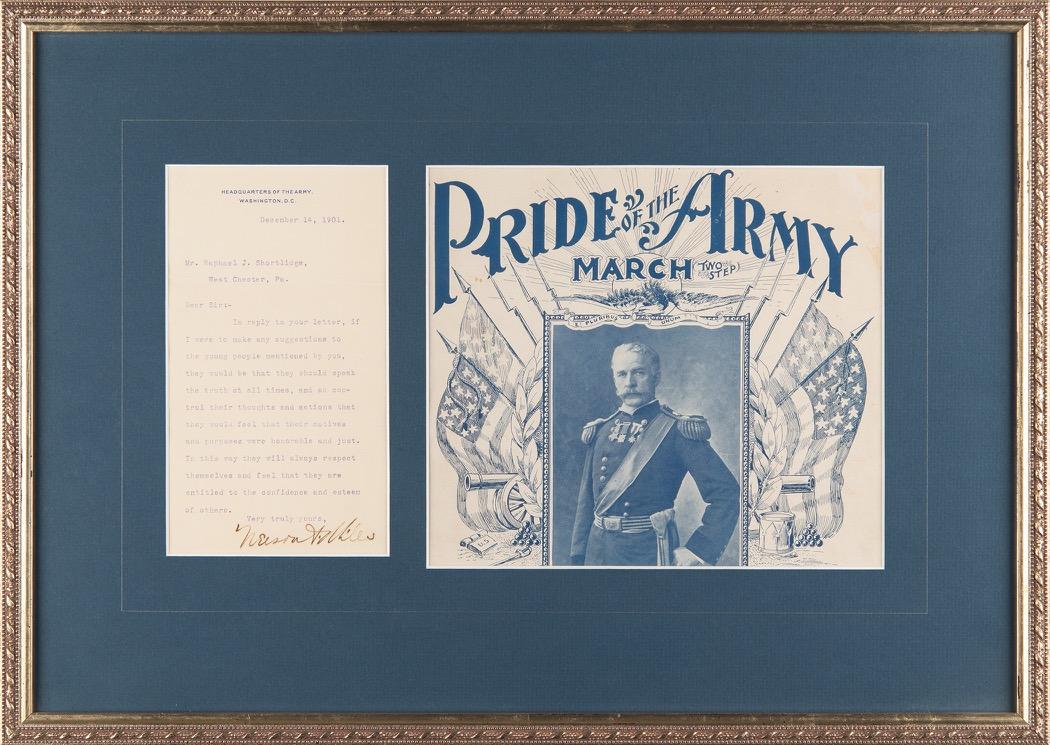 HEADQUARTERS OF THE ARMY.
WASHINGTON, D.C.
December 14, 1901.
Mr. Raphael J. Shortlidge,
West Chester, Pa.
Dear Sir:-
In reply to your letter, if
I were to make any suggestions to
the young people mentioned by you,
they would be that they should speak
the truth at all times, and so con-
trol their thoughts and actions that
they would feel that their motives
and purposes were honorable and just.
In this way they will always respect
themselves and feel that they are
entitled to the confidence and esteem
of others.
Very truly yours,
Nelson A. Miles
PRIDE OF THE ARMY
MARCH (TWO STEP)
E PLURIBUS UNUM
US